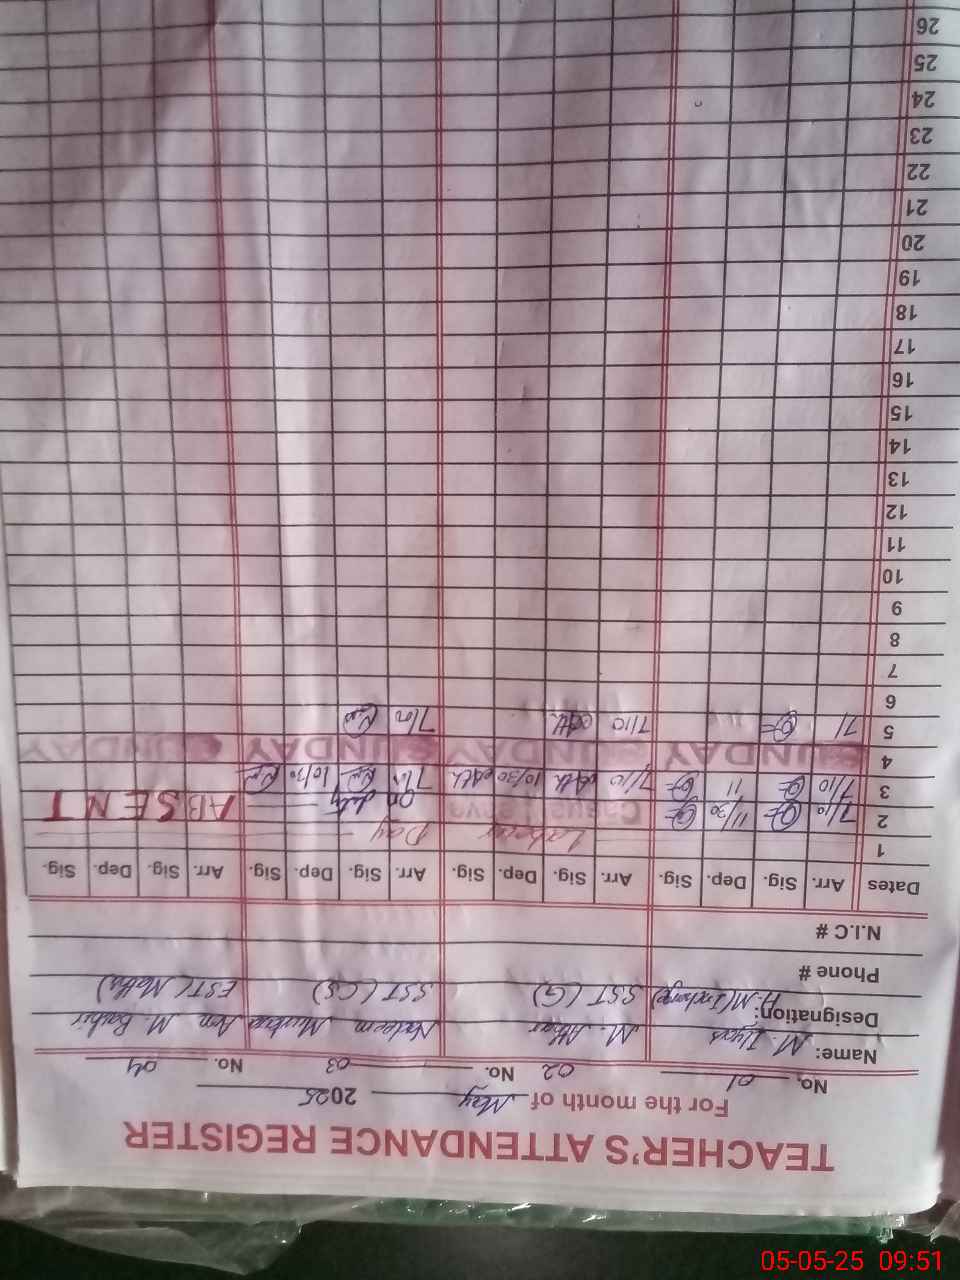 TEACHER'S ATTENDANCE REGISTER
For the month of May 2025
No. 01 No. 02 No. 03 No. 04
Name: M. Ilyas M. Athar Nadeem Murtaza M. Bashir
Designation: H.M(Incharge) SST (G) SST (CS) EST(Maths)
Phone #
N.I.C #
Dates Arr. Sig. Dep. Sig. Arr. Sig. Dep. Sig. Arr. Sig. Dep. Sig. Arr. Sig. Dep. Sig.
1 Day
2 7/10 11/30 Casual Leave on duty ABSENT
3 7/10 11 7/10 10/30 10/30
4 SUNDAY SUNDAY SUNDAY SUNDAY
5 7/ 7/10
6
7
8
9
10
11
12
13
14
15
16
17
18
19
20
21
22
23
24
25
26
05-05-25 09:51